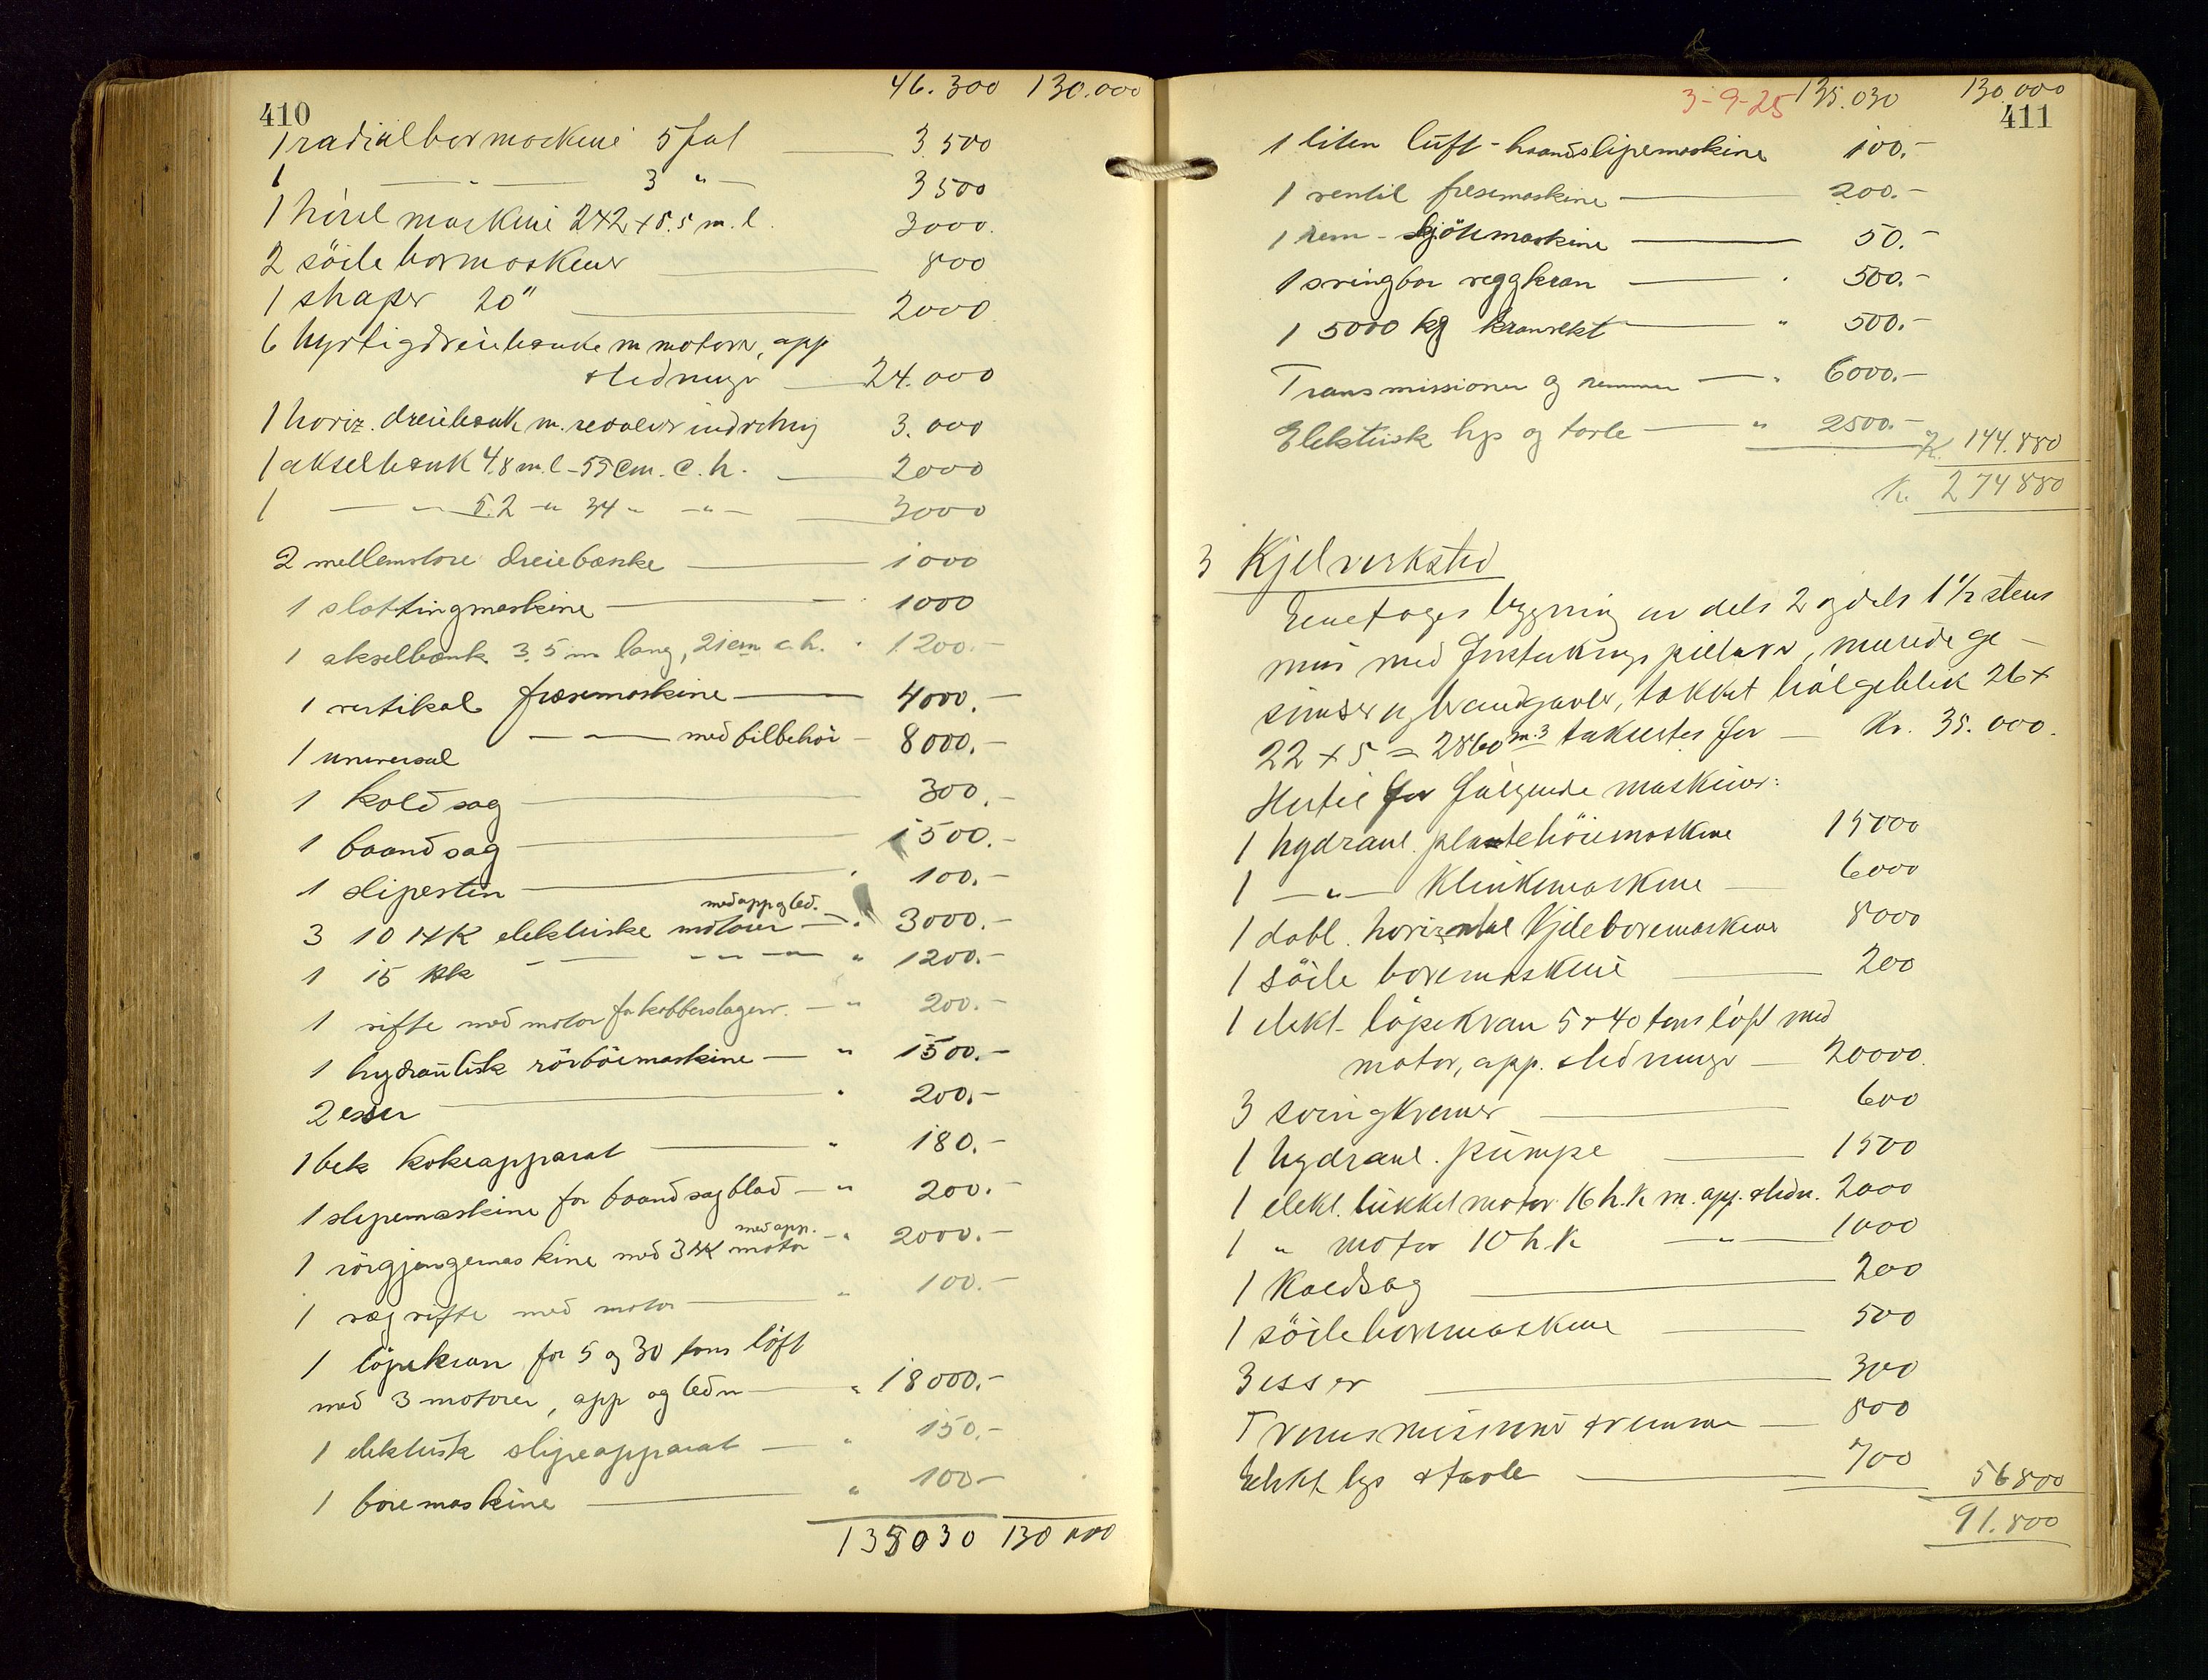 46.300 130.000
410
1 radialbormaskine 5 fot 3.500
1 — " — 3 " — 3500
1 hövelmaskine 2×2×5.5 m. l. 3000.
2 söilebormaskiner 800
1 shaper 20" 2000
6 hurtigdreiebænke m motorer, app
& ledninger 24.000
1 horiz. dreiebænk m. revolver indretnig 3.000
1 akselbænk 4.8 m. l - 55 cm. c. h. 2000
1 — " — 5.2 " 34 " — " — 3000
2 mellemstore dreiebænke 1000
1 slottingmaskine 1000
1 akselbænk 3.5 m lang, 21 cm c. h. " 1200.-
1 vertikal fræsemaskine 4000.-
1 universal — " — med tilbehör 8000.-
1 koldsag 300.-
1 baandsag 1500.-
1 slipesten " 100.-
med app og led.
3 10 HK elektriske motorer — " 3000.-
1 15 Hk — " — " 1200.-
1 vifte med motor for kobberslager. — " 200.-
1 hydraulisk rörböiemaskine — " 1500.-
2 esser " 200.-
1 bek kokeapparat " 180.-
1 slipemaskine for baandsagblad — " 200.-
med app.
1 rörgjengemaskine med 3 HK motor — " 2000.-
1 væg vifte med motor " 100.-
1 löpekran for 5 og 30 tons löft
med 3 motorer, app og ledn — " 18000.-
1 elektrisk slipeapparat — " 150.-
1 boremaskine " 100-
135030 130000
3-9-25 135.030 130.000
411
1 liten luft-haandslipemaskine 100.-
1 ventil fresemaskine 200.-
1 rem-skjötemaskine 50.-
1 svingbar veggkran " 500.-
1 5000 kg kranvekt " 500.-
Transmissioner og remmer — " 6000.-
Elektrisk lys og tavle — " 2500.- K. 144.880
K. 274880
3 Kjelverksted
Enetages bygning av dels 2 og dels 1 1/2 stens
mur med forsterknings pillarer, murede ge-
simser og brandgavler, takket bölgeblik 26×
22 × 5 = 2860 m.3 taksertes for — Kr. 35.000.
Hertil for fölgende maskiner:
1 hydraul. platehöiemaskine 15000
1 — " — Klinkemaskine 6000
1 dobl. horizontal Kjeleboremaskine 8000
1 söile boremaskine 200
1 elekt- löpekran 5 & 40 tons löft med
motor, app. & ledninger 20000.
3 svingkraner 600
1 hydraul. pumpe 1500
1 elekt. lukket motor 16 h.k m. app. & ledn. 2000
1 " motor 10 h.k — " — 1000
1 Koldsag 200
1 söileboremaskine 500
3 esser 300
Transmissioner & remme 800
Elekt lys & tavle 700 56800
91.800